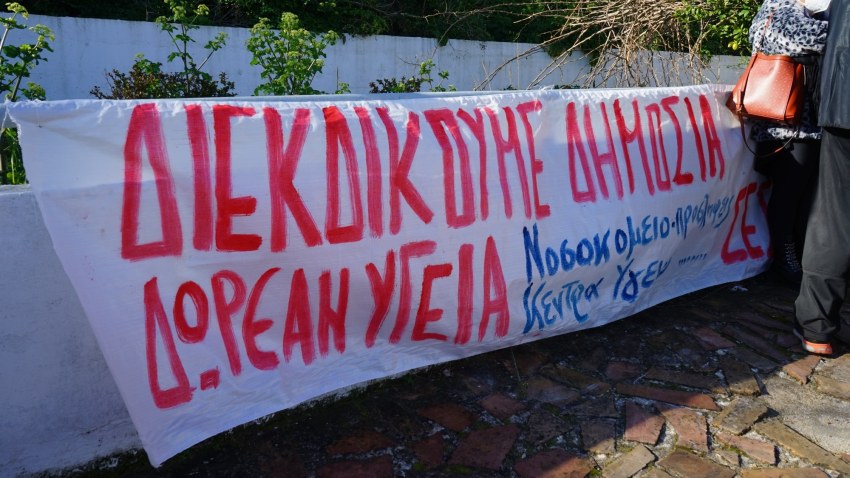 ΔΙΕΚΔΙΚΟΥΜΕ ΔΗΜΟΣΙΑ
ΔΩΡΕΑΝ ΥΓΕΙΑ
Νοσοκομείο-προσλήψεις
Κέντρα Υγεί
ΣΕ